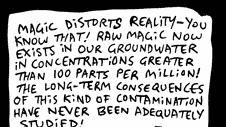 MAGIC DISTORTS REALITY-YOU
KNOW THAT! RAW MAGIC NOW
EXISTS IN OUR GROUNDWATER
IN CONCENTRATIONS GREATER
THAN 100 PARTS PER MILLION!
THE LONG-TERM CONSEQUENCES
OF THIS KIND OF CONTAMINATION
HAVE NEVER BEEN ADEQUATELY
STUDIED!